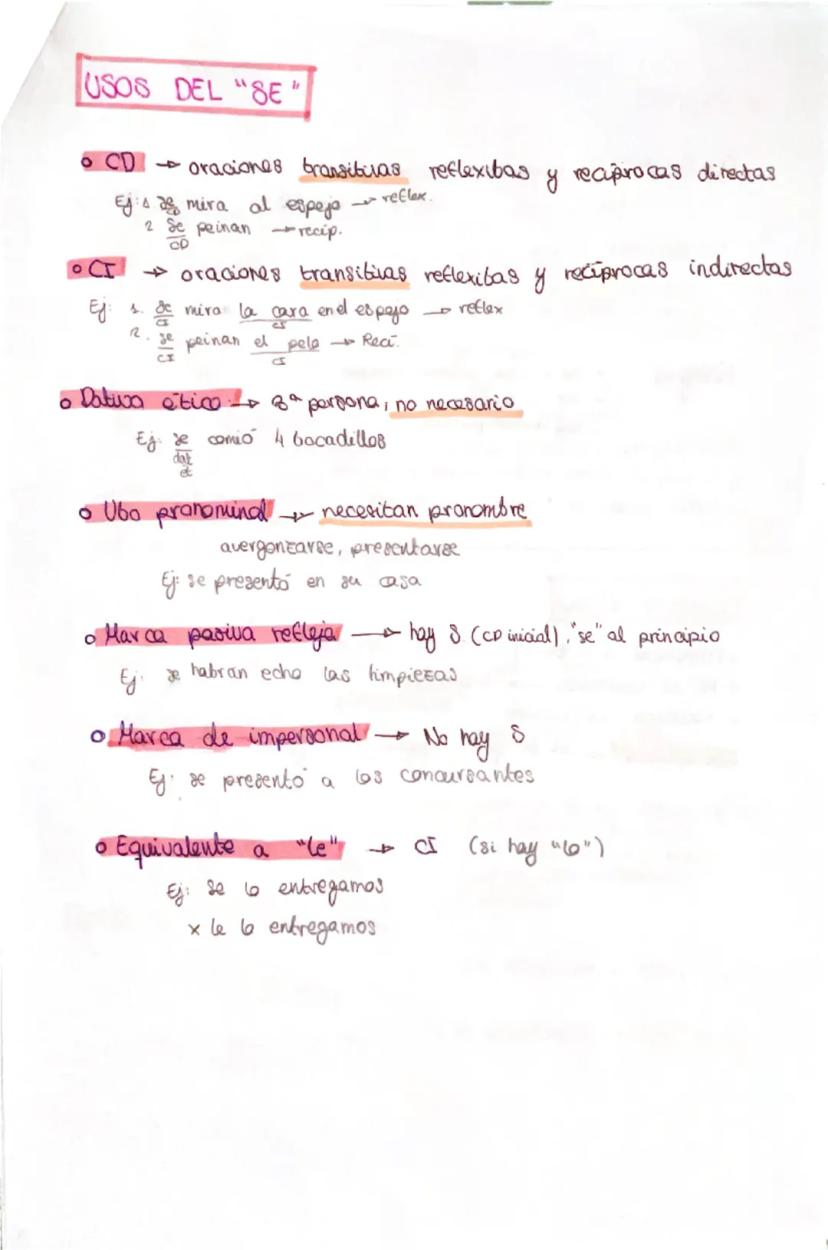 USOS DEL "SE"
o CD → oraciones transitivas reflexibas y reciprocas directas
Ej: 1 se mira al espejo → reflex.
CD
2 Se peinan → recip.
CD
o CI → oraciones transitivas reflexibas y reciprocas indirectas
Ej: 1. se mira la cara en el espejo → reflex
CI CI
2. se peinan el pelo → Reci.
CI CI
o Dativo ético → 3ª persona, no necesario
Ej. se comió 4 bocadillos
dat
ét
o Vbo pronominal → necesitan pronombre
avergonzarse, presentarse
Ej: se presentó en su casa
o Marca pasiva refleja → hay S (CD inicial), "se" al principio
Ej. se habran echo las limpiezas
o Marca de impersonal → No hay S
Ej: se presentó a los concursantes
o Equivalente a "le" → CI (si hay "lo")
Ej: Se lo entregamos
x le lo entregamos